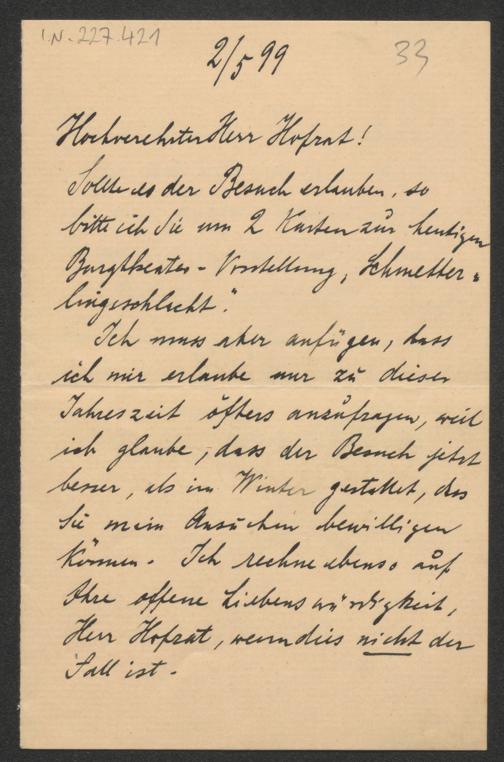 I.N. 227.421
2/5 99
33
Hochverehrter Herr Hofrat!
Sollte es der Besuch erlauben, so
bitte ich Sie um 2 Karten zur heutigen
Burgtheater-Vorstellung „Schmetter-
lingsschlacht."
Ich muss aber anfügen, dass
ich mir erlaube nur zu dieser
Jahreszeit öfters anzufragen, weil
ich glaube, dass der Besuch jetzt
besser, als im Winter gestattet, das
Sie mein Ansuchen bewilligen
können. Ich rechne ebenso auf
Ihre offene Liebenswürdigkeit,
Herr Hofrat, wenn dies nicht der
Fall ist.